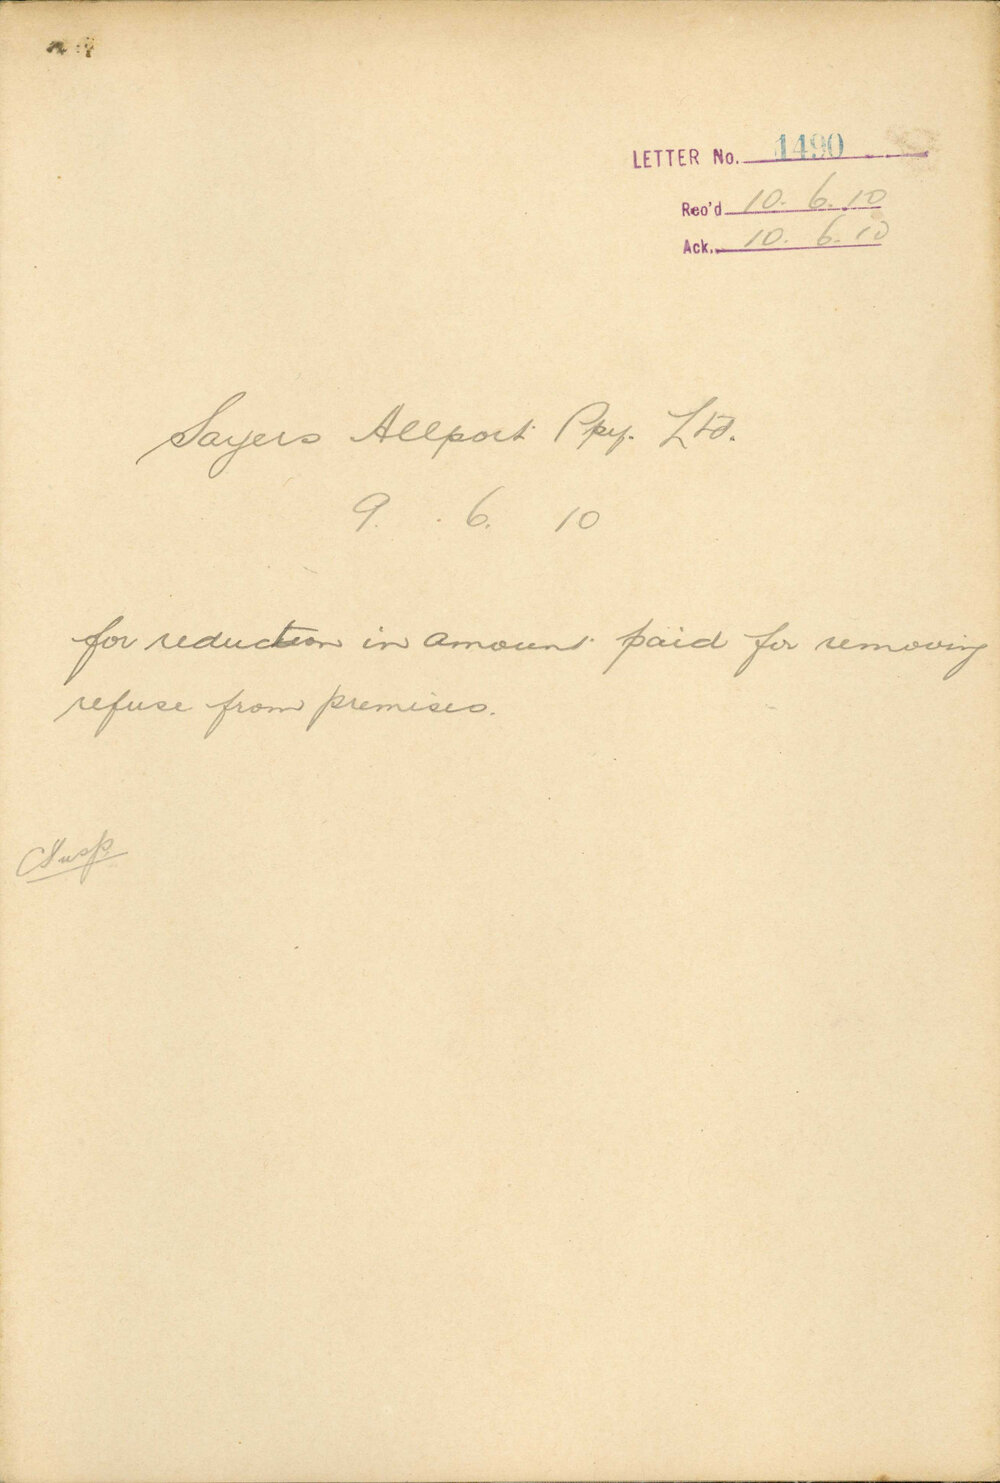 LETTER No. 1490
Rec'd 10. 6. 10
Ack. 10. 6. 10
Sayers Allport Ppy. Ltd.
9. 6. 10
for reduction in amount paid for removing
refuse from premises.